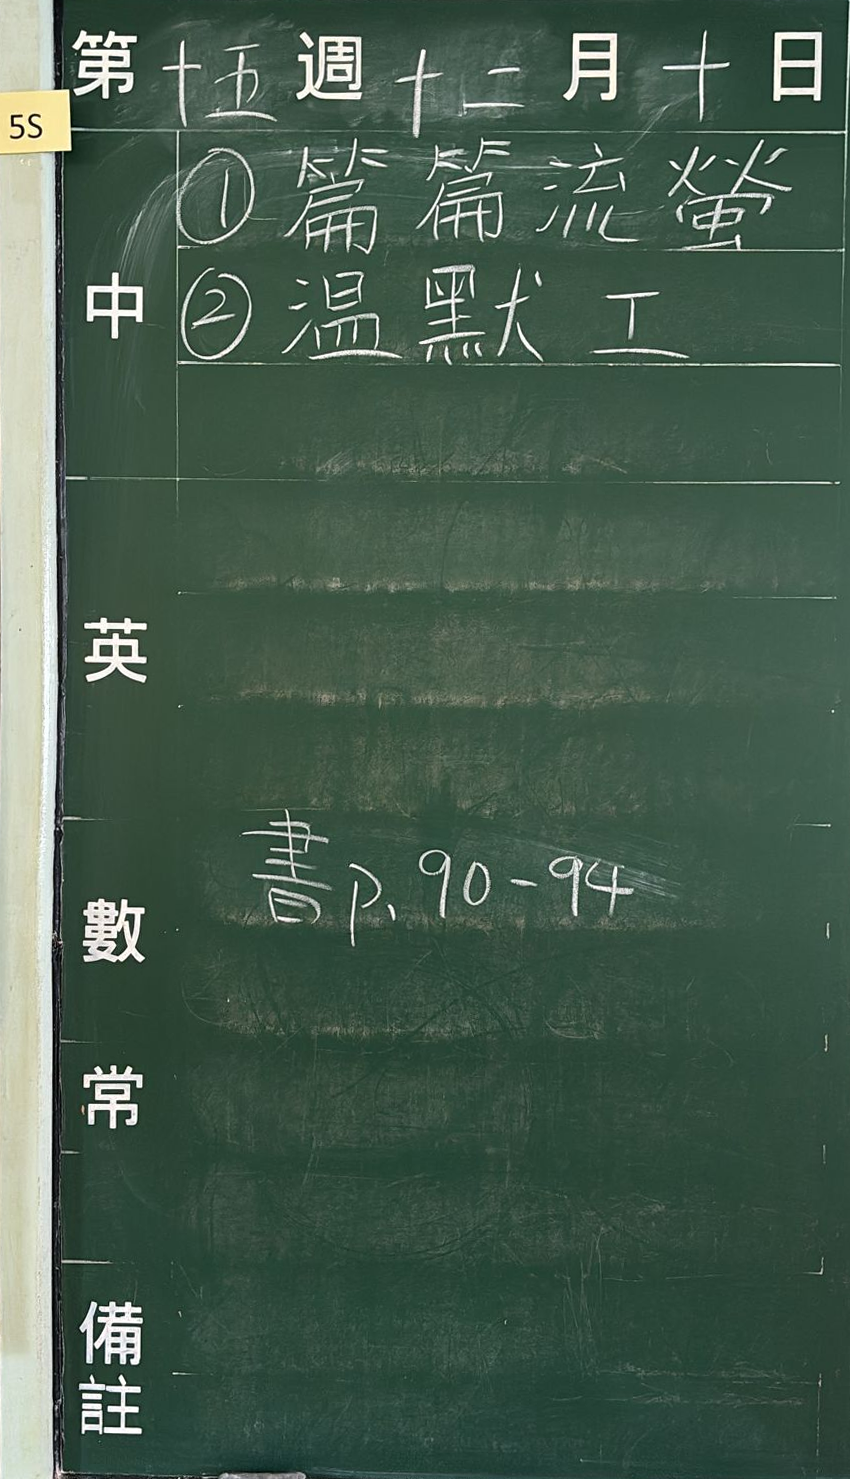 第十五週十二月十日
5S
中
①篇篇流螢
②温默工
英
數
書p.90-94
常
備註